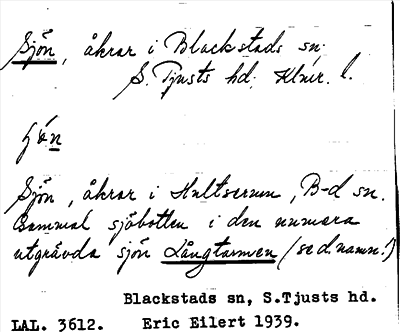 Sjön, åkrar i Blackstads sn.
S. Tjusts hd. Klmr. l.
Sjön, åkrar i Hultserum, B-d sn.
Gammal sjöbotten i den numera
utgrävda sjön Långtarmen (se d. namn!)
Blackstads sn, S.Tjusts hd.
LAL. 3612. Eric Eilert 1939.